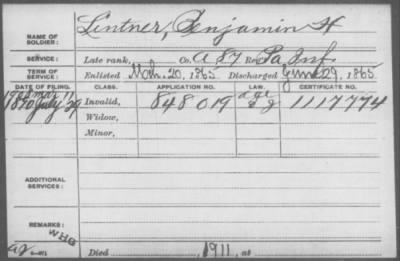 NAME OF SOLDIER: Lintner, Benjamin H
SERVICE: Late rank, Co. A 87 Reg. Pa. Inf.
TERM OF SERVICE: Enlisted Mch. 20, 1865 Discharged June 29, 1865
DATE OF FILING. CLASS. APPLICATION NO. LAW. CERTIFICATE NO.
1890 July 29 Invalid, 848019 1117774
Widow,
Minor,
ADDITIONAL SERVICES:
REMARKS: WHG
Died 1911, at